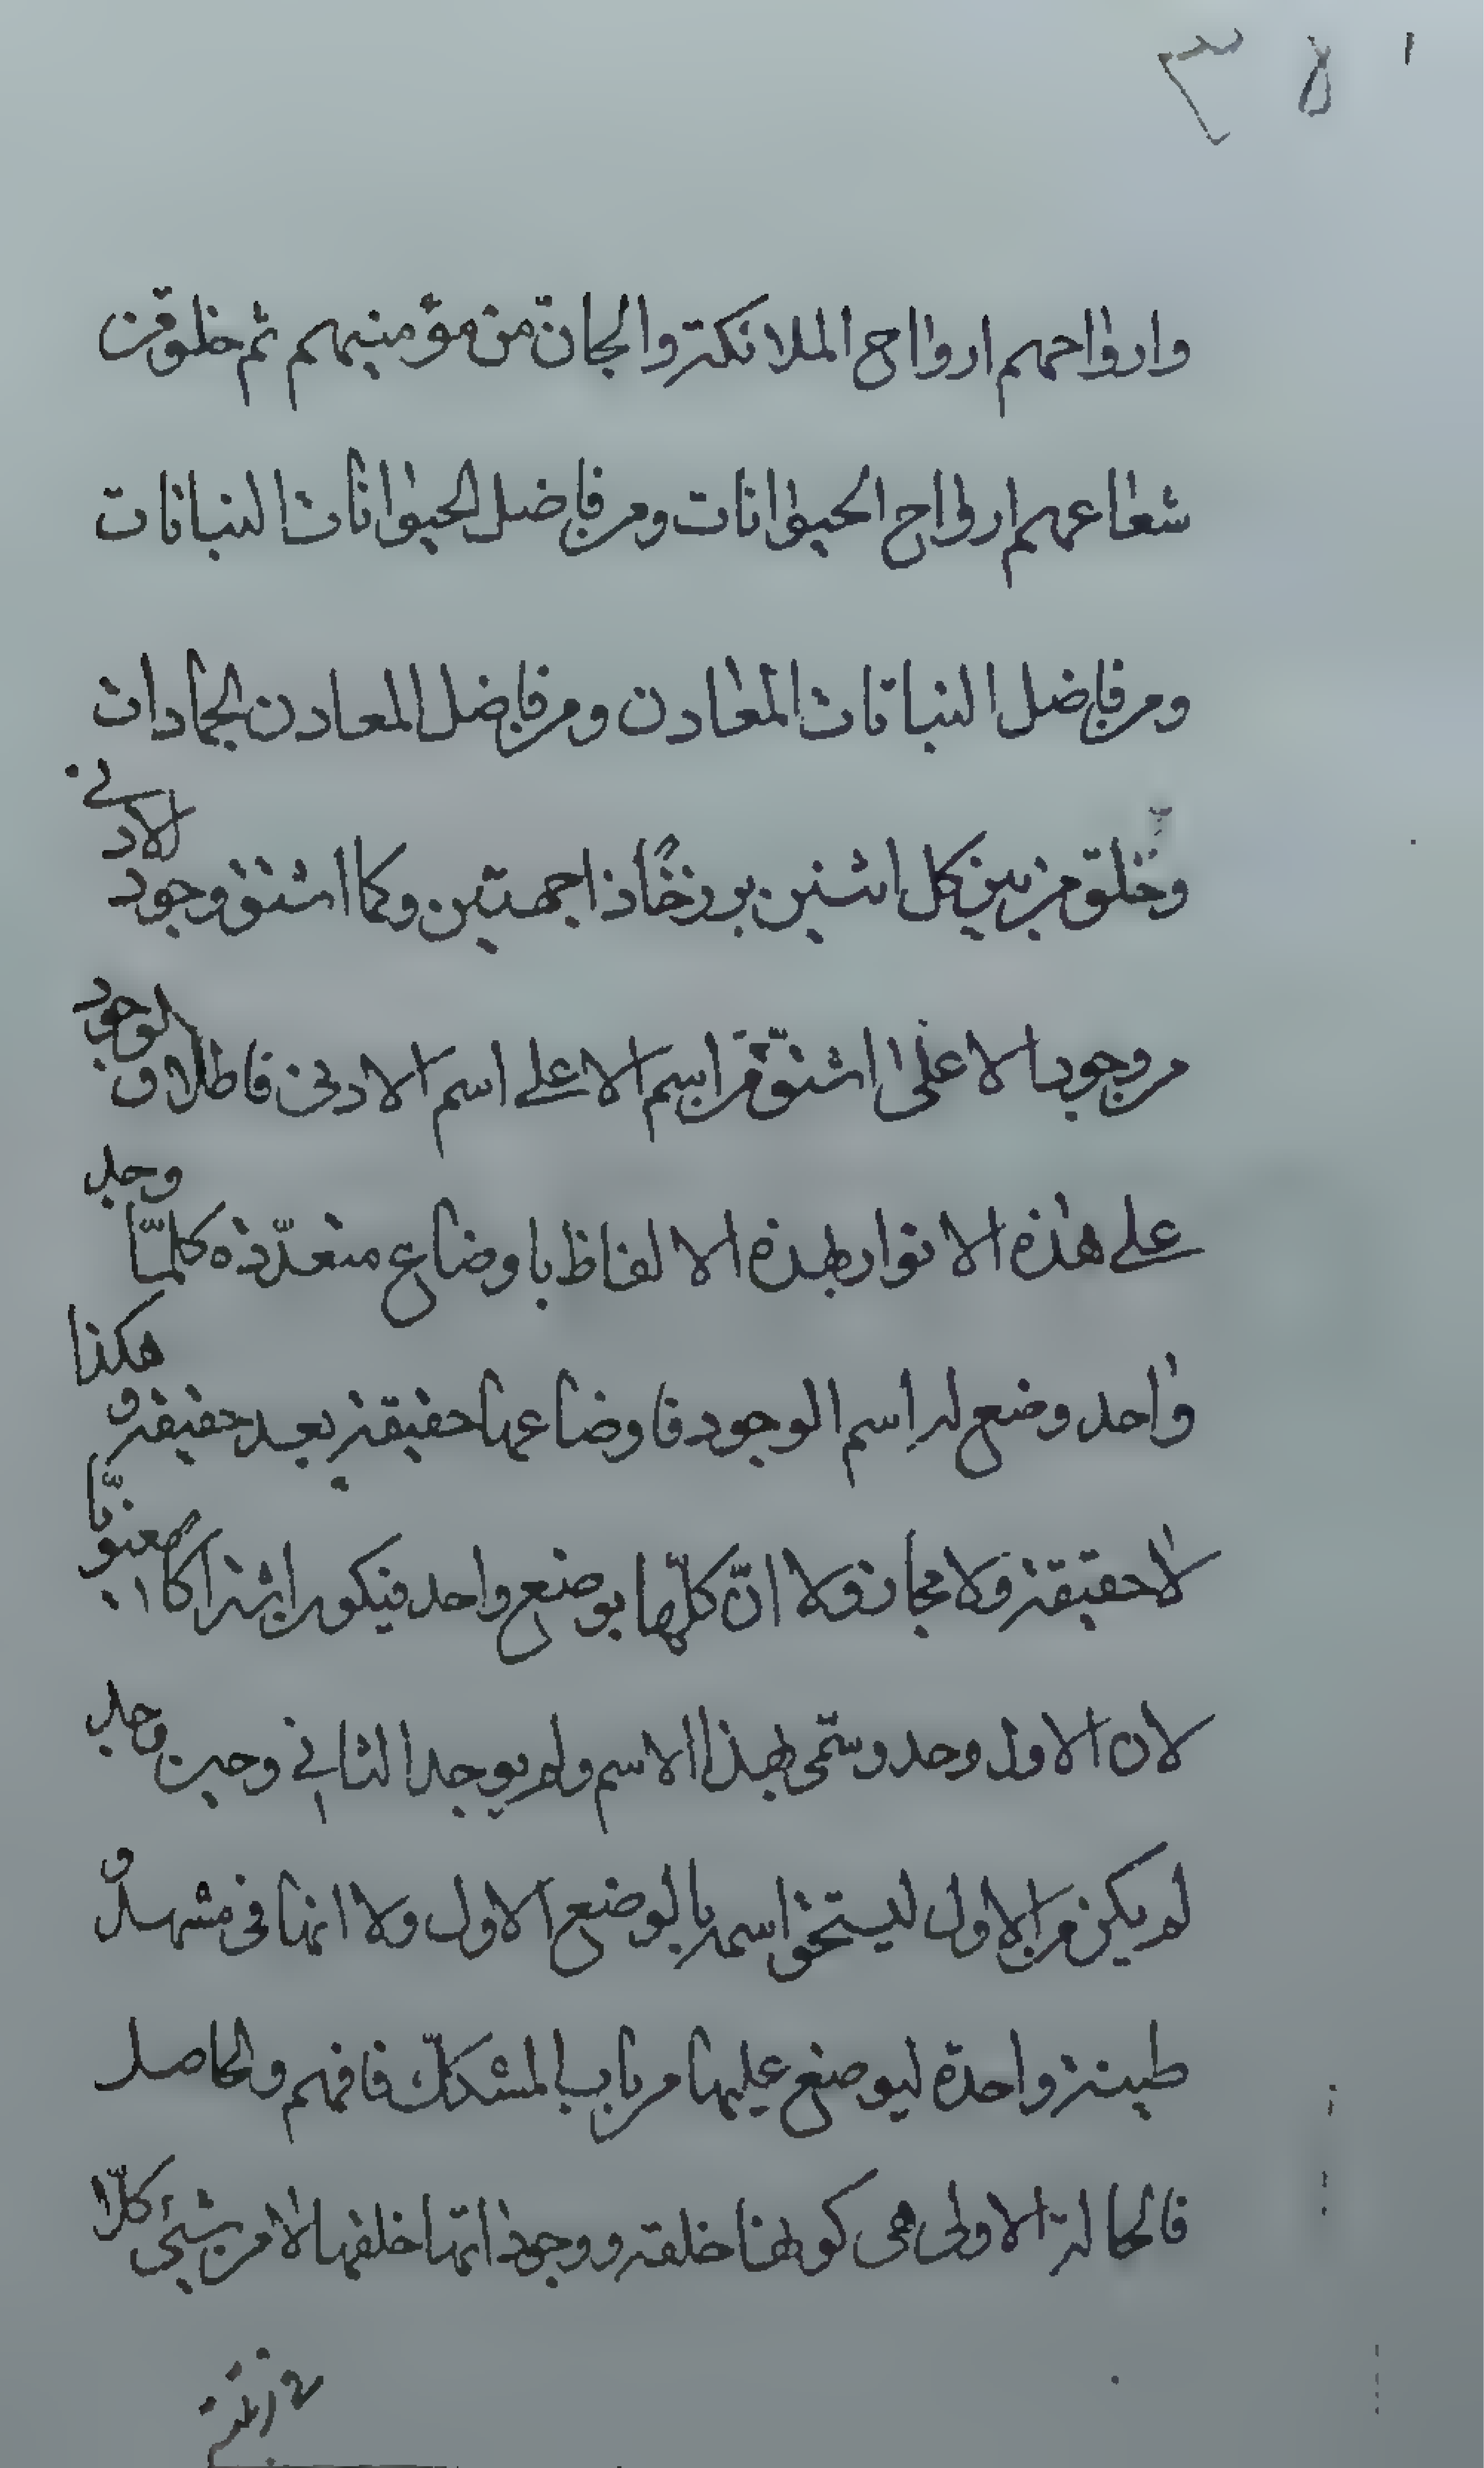 وارواحهم ارواح الملائكة والجانّ من مؤمنيهم ثم خلق من
شعاعهم ارواح الحيوانات ومن فاضل الحيوانات النباتات
ومن فاضل النباتات المعادن ومن فاضل المعادن الجمادات
وخلق من بين كل اثنين برزخًا ذا جهتين وكما اشتق وجود الادنى
من وجود الاعلى اشتقّ من اسم الاعلى اسم الادنى فاطلاق الوجود
على هذه الانوار بهذه الالفاظ باوضاع متعدّدة كلمّا وجد
واحد وضع له اسم الوجود فاوضاعها حقيقة بعد حقيقة وهكذا
لا حقيقة ولا مجاز ولا انّ كلّها بوضع واحد فيكون اشتراكًا معنويّا
لان الاول وجد وسمّى بهذا الاسم ولم يوجد الثانى وحين وجد
لم يكن من الاول ليستحق اسمه بالوضع الاول ولا انها فى مشهدٍ و
طينة واحدة ليوضع عليها من باب المشكّك فافهم والحاصل
فالحالة الاولى هى كونها خلقه ووجود انّها خلقها لا من شىء كلّا